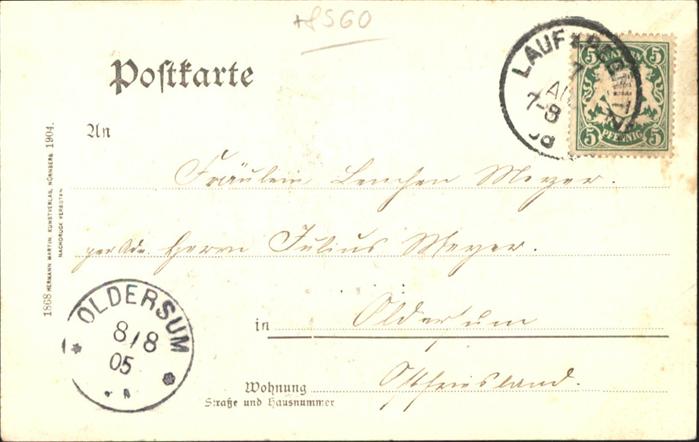 +8560
Postkarte
LAUF
7-8
BAYERN
5 5
5 PFENNIG 5
An
Fräulein Lenchen Meyer.
per Adr. Herrn Julius Meyer.
in Oldersum
Wohnung Ostfriesland.
Straße und Hausnummer
OLDERSUM
8/8
05
1868 HERMANN MARTIN KUNSTVERLAG, NÜRNBERG 1904.
NACHDRUCK VERBOTEN